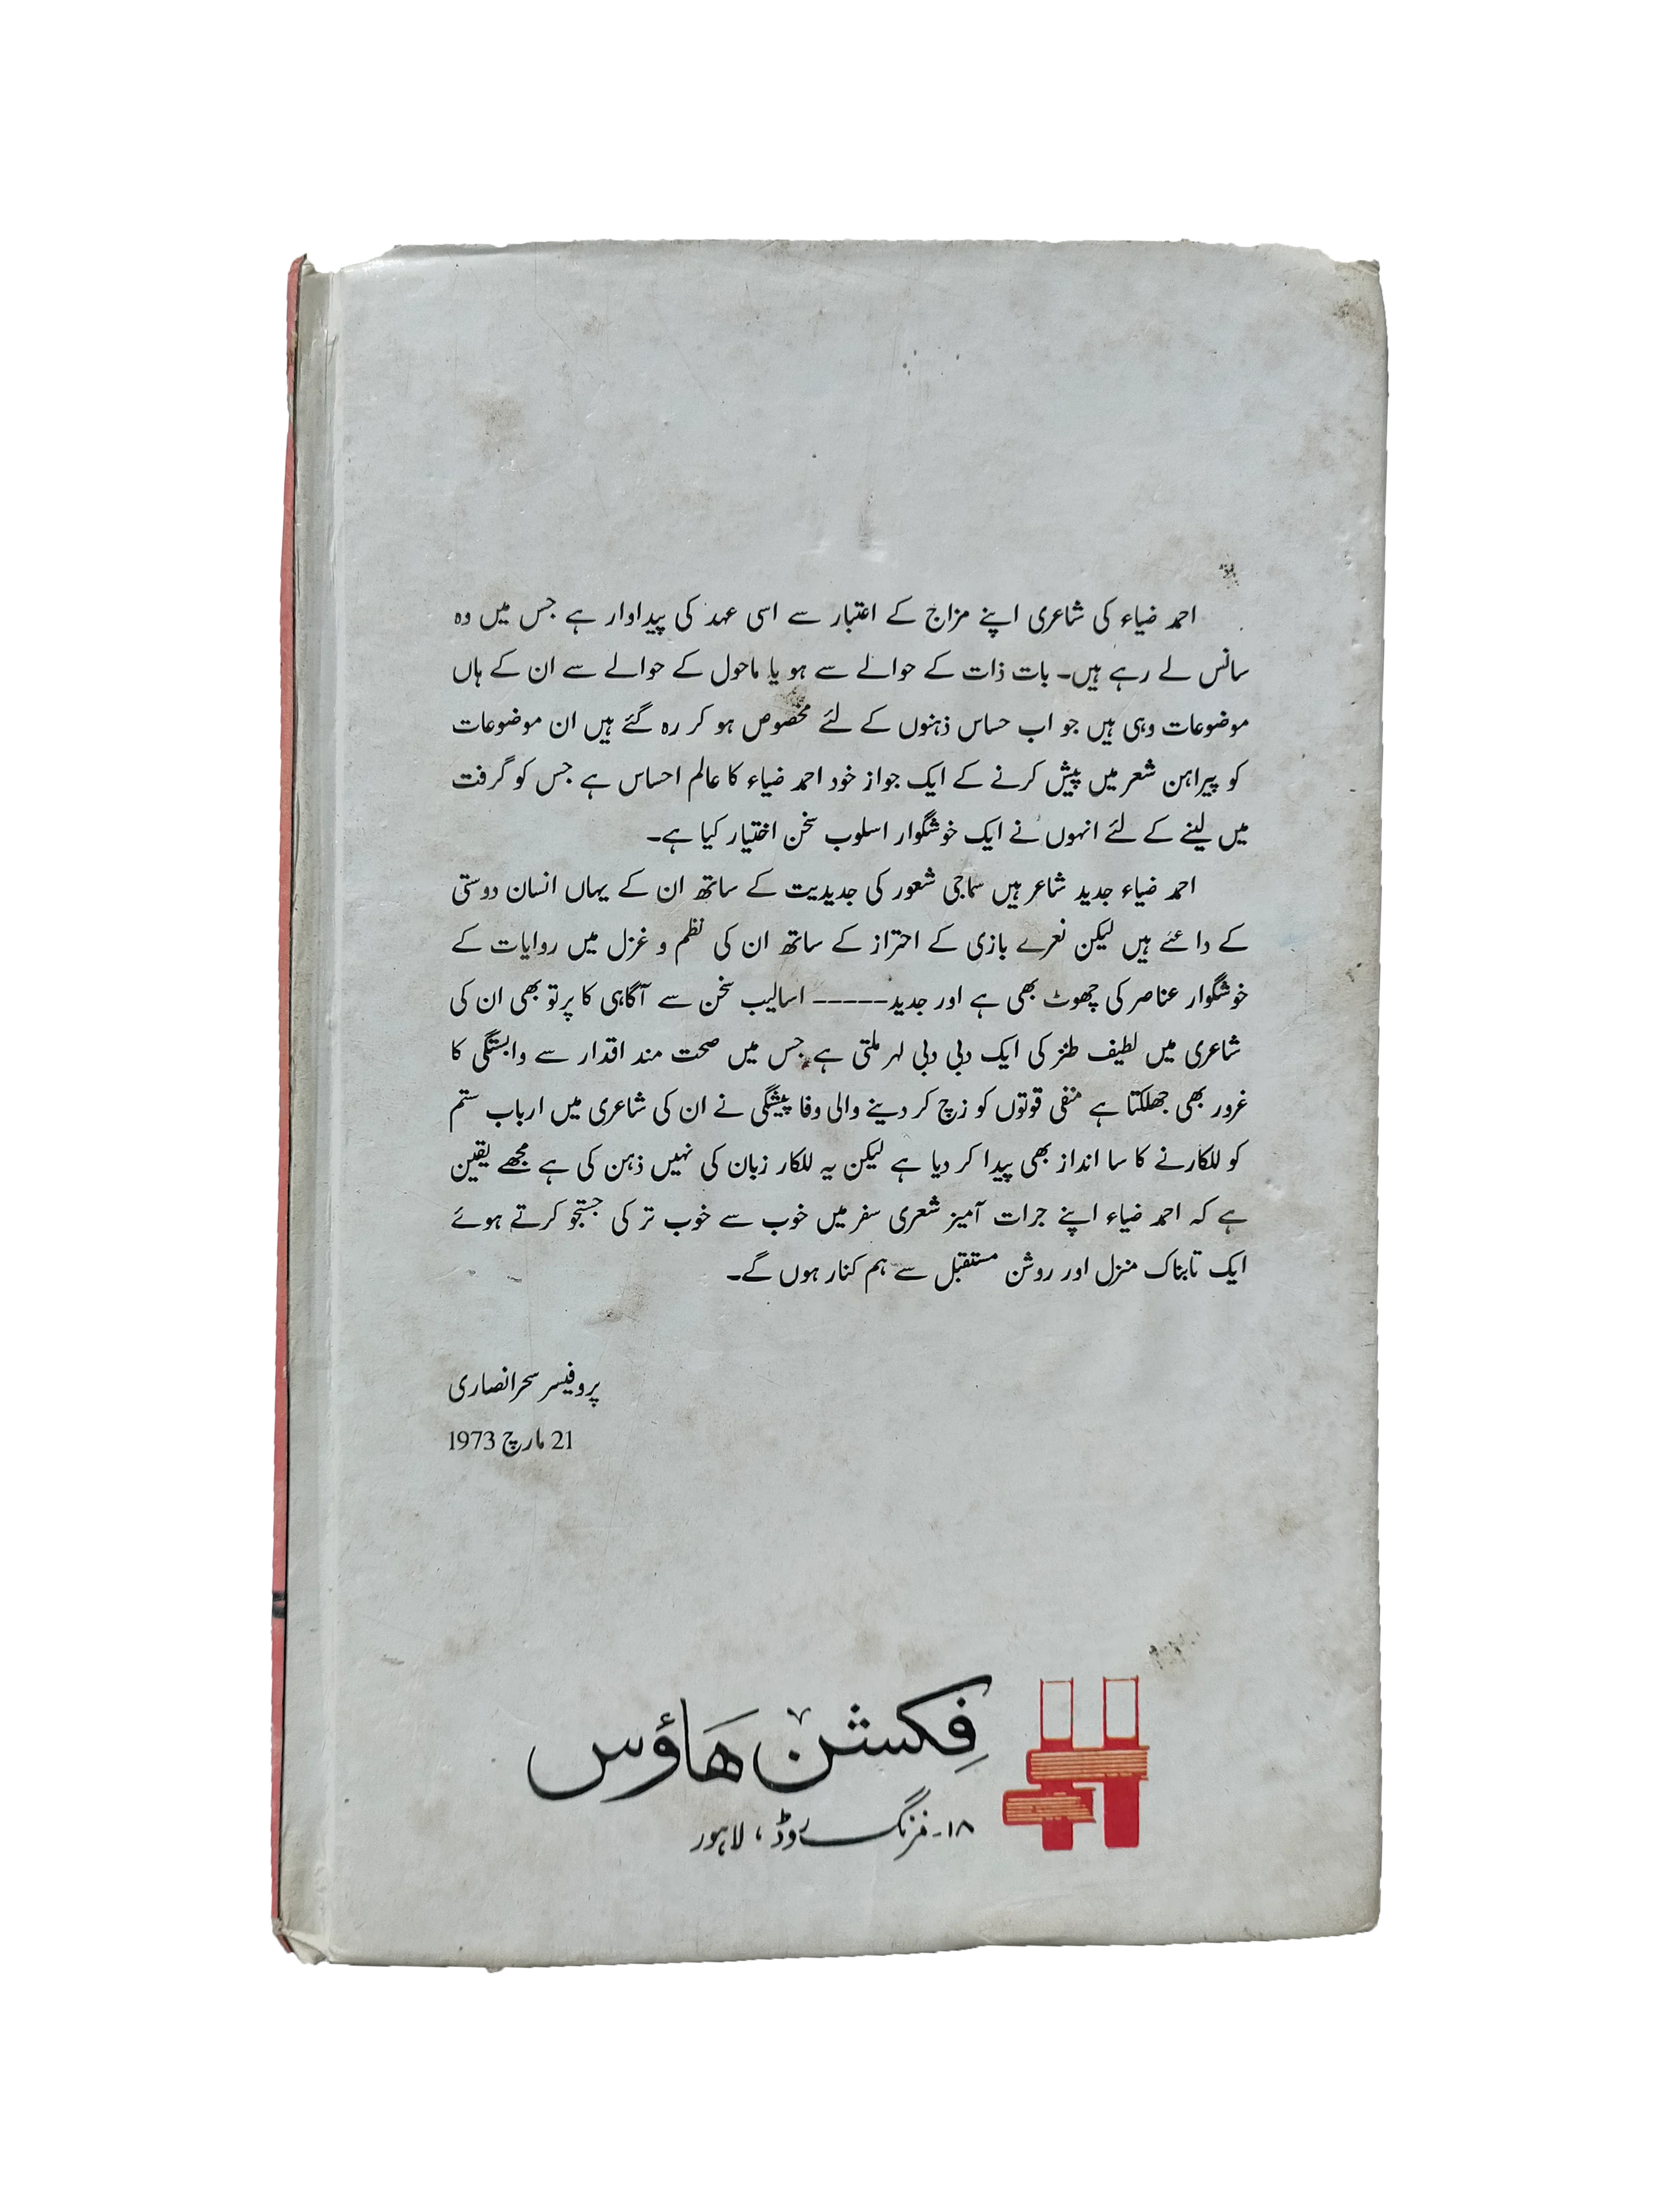 احمد ضیاء کی شاعری اپنے مزاج کے اعتبار سے اسی عہد کی پیداوار ہے جس میں وہ
سانس لے رہے ہیں۔ بات ذات کے حوالے سے ہو یا ماحول کے حوالے سے ان کے ہاں
موضوعات وہی ہیں جو اب حساس ذہنوں کے لئے مخصوص ہو کر رہ گئے ہیں ان موضوعات
کو پیراہن شعر میں پیش کرنے کے ایک جواز خود احمد ضیاء کا عالم احساس ہے جس کو گرفت
میں لینے کے لئے انہوں نے ایک خوشگوار اسلوب سخن اختیار کیا ہے۔
احمد ضیاء جدید شاعر ہیں سماجی شعور کی جدیدیت کے ساتھ ان کے یہاں انسان دوستی
کے داعئے ہیں لیکن نعرے بازی کے احتراز کے ساتھ ان کی نظم و غزل میں روایات کے
خوشگوار عناصر کی چھوٹ بھی ہے اور جدید----- اسالیب سخن سے آگاہی کا پرتو بھی ان کی
شاعری میں لطیف طنز کی ایک دبی دبی لہر ملتی ہے جس میں صحت مند اقدار سے وابستگی کا
غرور بھی جھلکتا ہے منفی قوتوں کو زچ کر دینے والی وفا پیشگی نے ان کی شاعری میں ارباب ستم
کو للکارنے کا سا انداز بھی پیدا کر دیا ہے لیکن یہ للکار زبان کی نہیں ذہن کی ہے مجھے یقین
ہے کہ احمد ضیاء اپنے جرات آمیز شعری سفر میں خوب سے خوب تر کی جستجو کرتے ہوئے
ایک تابناک منزل اور روشن مستقبل سے ہم کنار ہوں گے۔
پروفیسر سحر انصاری
21 مارچ 1973
فکشن ہاؤس
۱۸۔مزنگ روڈ، لاہور